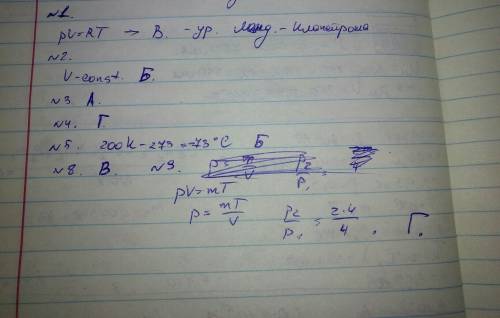 №1.
pV=RT → В. - ур. Менд.-Клапейрона
№2.
V-const. Б.
№3. А.
№4. Г.
№5. 200К-273=-73°С Б
№8. В. №9.
pV=mT
p=mT/V p₂/p₁=2·4/4. Г.